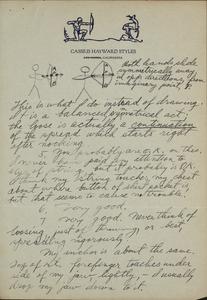 CASSIUS HAYWARD STYLES
CALIFORNIA
Both hands slide
symmetrically away
in opp. directions from
imaginary point, P.
This is what I do instead of drawing.
It is a balanced symmetrical act;
the loose is actually a continuation
of the spread which starts right
after nocking
5. You probably are O.K. on this.
I never paid attention to
but it probably is O.K.
My string touches my chest
about where button of shirt pocket is,
but that seems to cause no trouble.
6. Very good.
7. Very good. Never think of
loosing, just of or best
spreading vigorously
My anchor is about the same.
Top of R. forefinger touches under
side of my jaw lightly, – I usually
drop my jaw down to it.